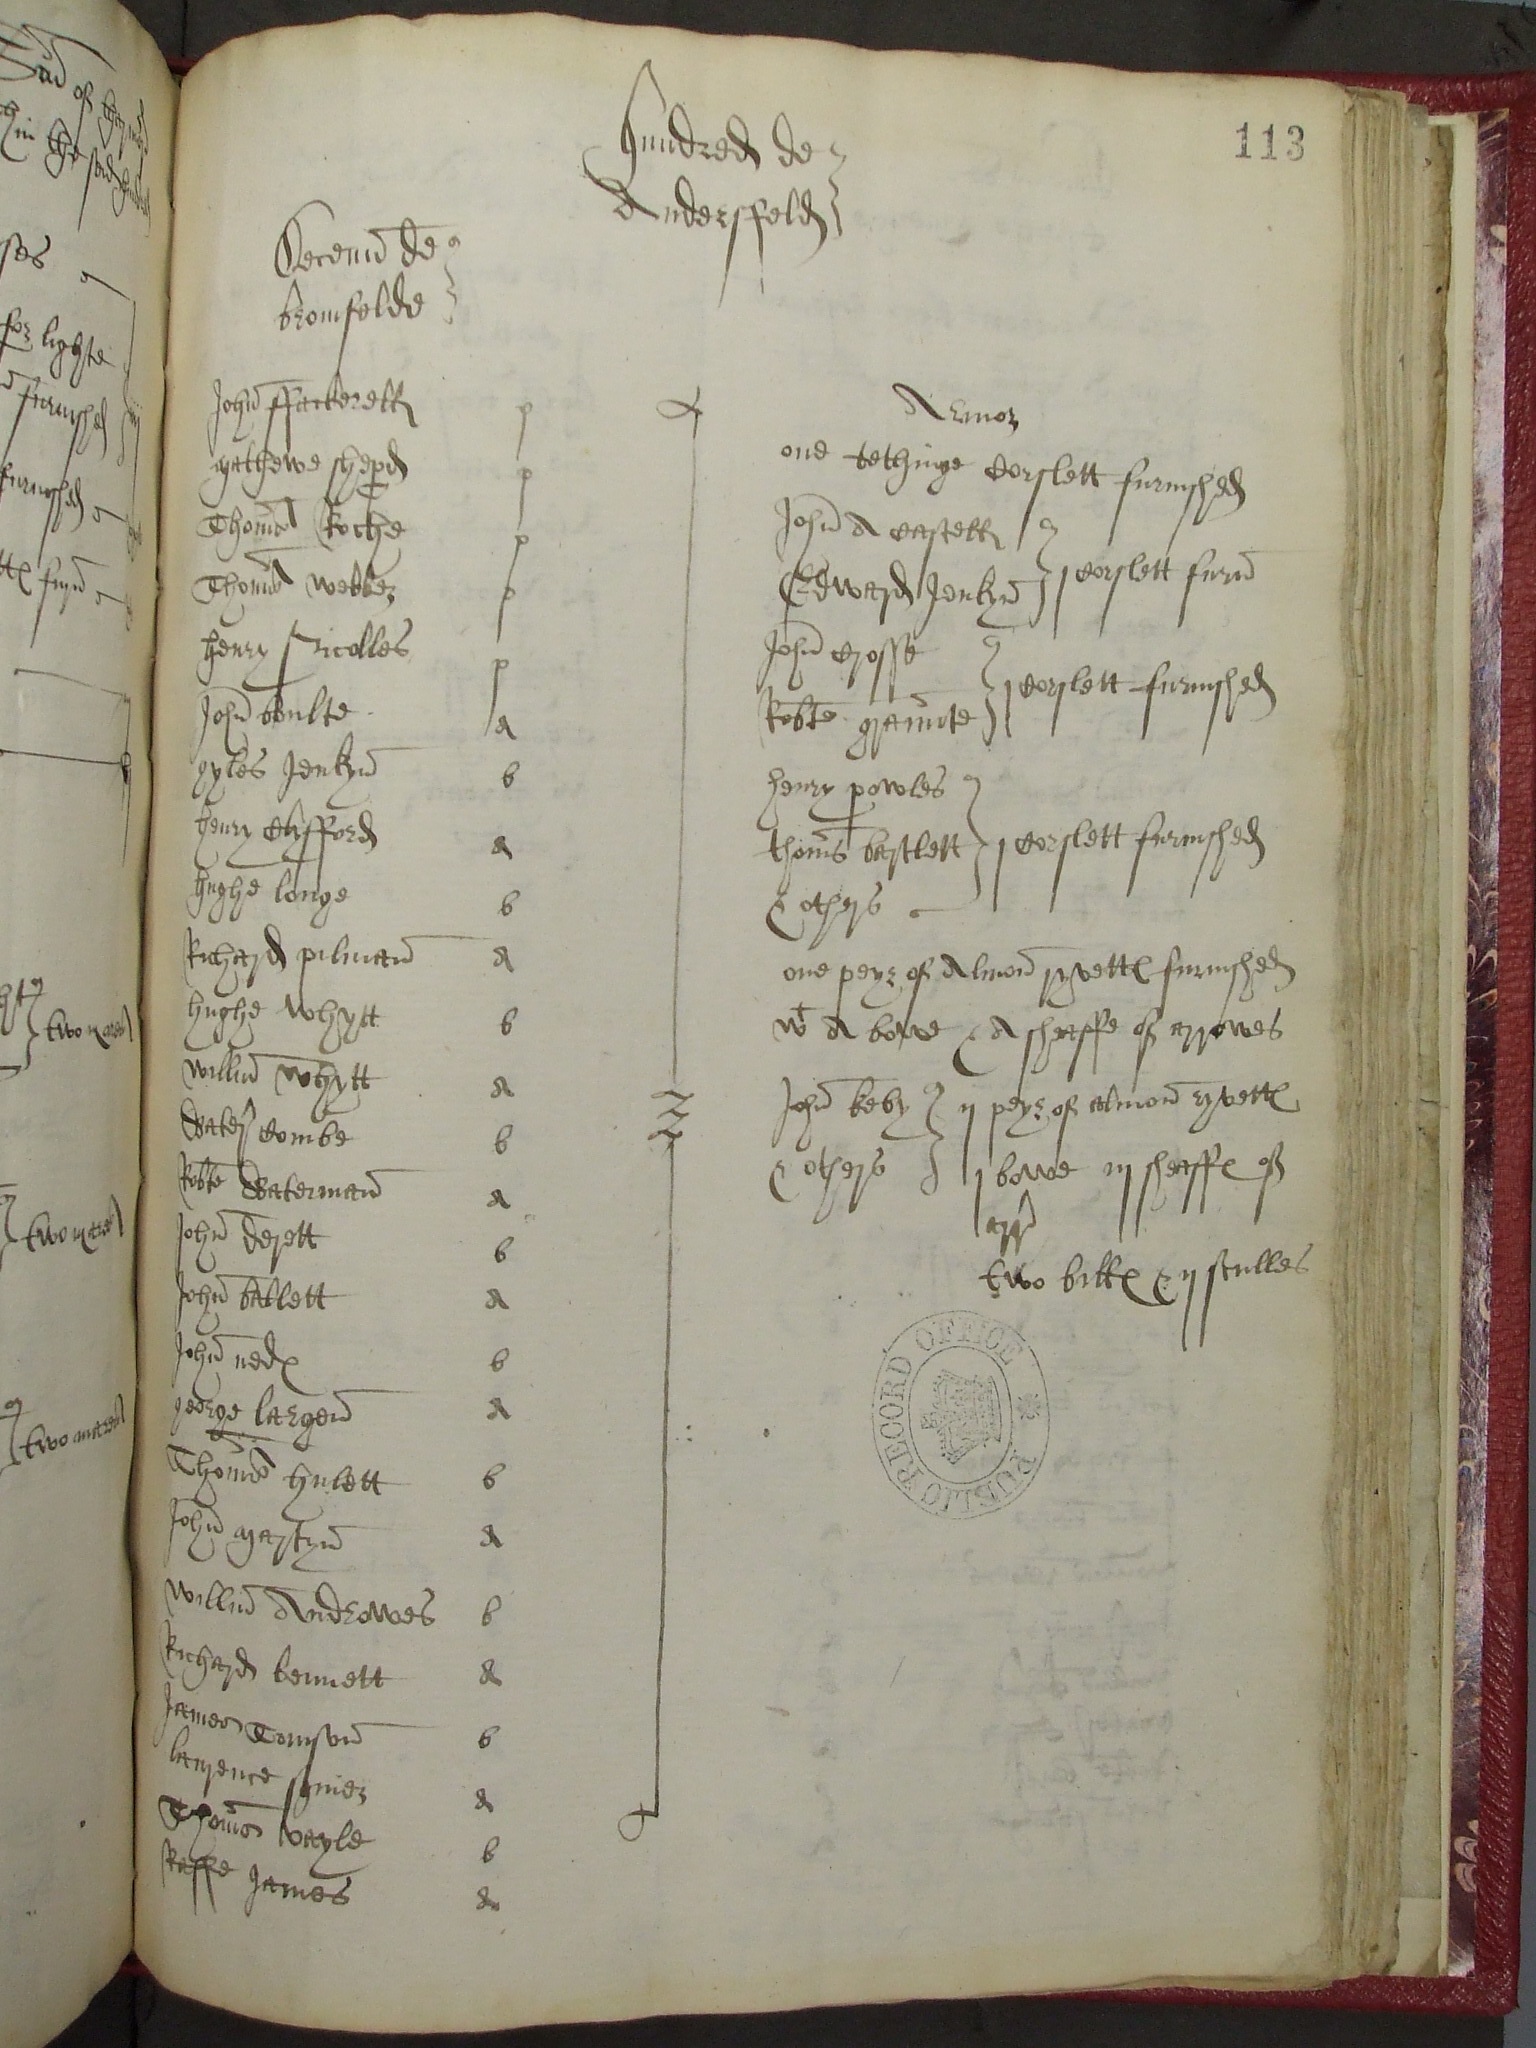 113
Hundred de
Andersfeld
Decenn de
bromfelde
John ffackerell p
Mathewe shepd p
Thoms Roche p
Thoms Webber p
henry Nicolles p
John boulte a
gyles Jenkyn b
henry Clyfford a
hughe longe b
Richard pilman a
hughe Whytt b
Willm Whytt a
Water Combe b
Robte Waterman a
John Derett b
John ballett a
John nedes b
george largen a
Thoms hulett b
John Martyn a
Willm Androwes b
Richard bennett a
James Tomson b
larrence a
Thoms vayle b
Raffe James a
Armor
one tethinge Corslett furnished
John A Castell
Edward Jenkyn j corslett furn
John Crosse
Robte j corslett furnished
henry powles
thoms bartlett j corslett furnished
& others
one peyr of Almon ryvettes furnished
wt A bowe & A sheaffe of arrowes
John keby ij peyr of almon ryvettes
& others j bowe iij sheaffes of
arr
two billes & ij sculles
PUBLIC RECORD OFFICE
for lighte
furnished
furnished
two mares
two mares
two mares